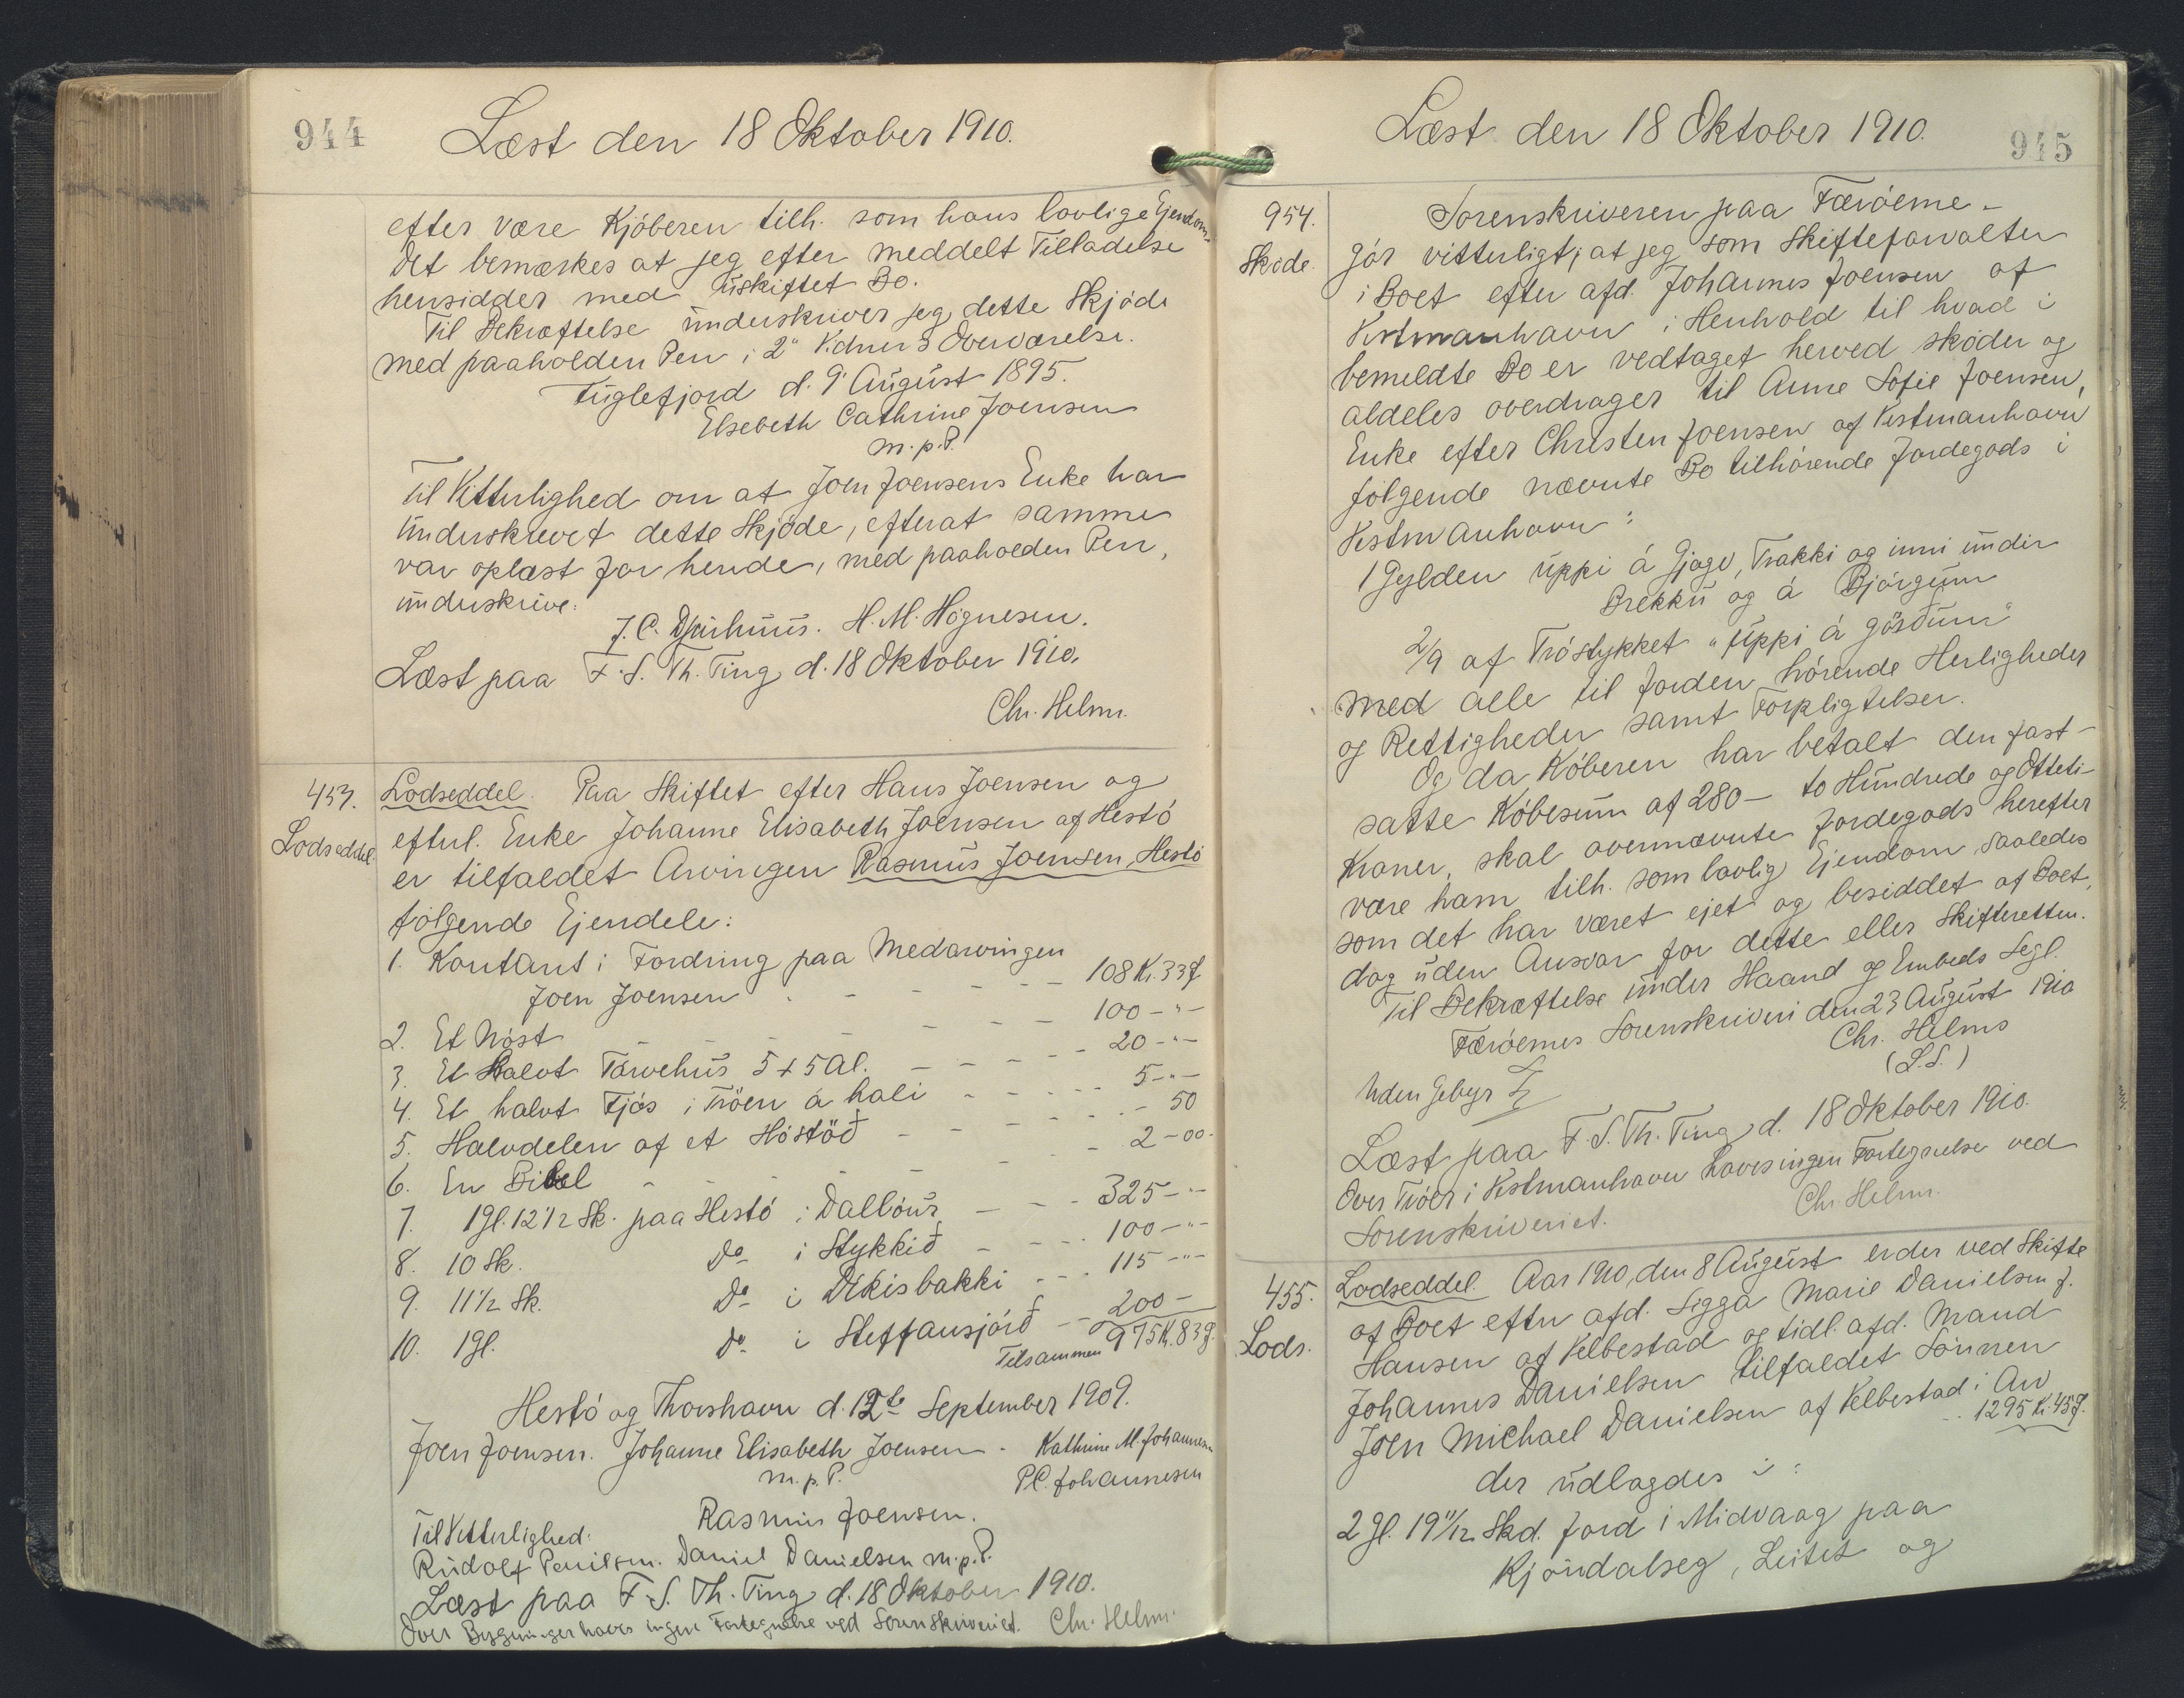 944
Læst den 18 Oktober 1910.
efter være Kjøberen tilh. som hans lovlige Ejendom.
Det bemærkes at jeg efter meddelt Tilladelse
hensidder med uskiftet Bo.
Til Bekræftelse underskriver jeg dette Skjøde
med paaholden Pen i 2" Vidners Overværelse.
Fuglefjord d. 9' August 1895.
Elsebeth Cathrine Joensen
m.p.P.
Til Vitterlighed om at Joen Joensens Enke har
underskrevet dette Skjøde, efterat samme
var oplæst for hende, med paaholden Pen,
underskrive:
J.C. Djurhuus. H.M. Høgnesen.
Læst paa F.S. Th. Ting d. 18 Oktober 1910.
Chr. Helms.
453. Lodseddel. Paa Skiftet efter Hans Joensen og
Lodseddel. efterl. Enke Johanne Elisabeth Joensen af Hestø
er tilfaldet Arvingen Rasmus Joensen, Hestø
følgende Ejendele:
1. Kontant i Fordring paa Medarvingen
Joen Joensen - - - - 108 Kr. 33 Ø
2. Et Nøst - - - - 100 - " -
3. Et Halvt Tørvehus 5 + 5 Al. - - - - 20 - " -
4. Et halvt Fjós i Trøen á hali - - - - 5 - " -
5. Halvdelen af et Hóstöð - - - - 50
6. En Bibel - - - - 2 - 00 -
7. 1 Gl. 12 1/2 Sk. paa Hestø i Dallöur - - - 325 - " -
8. 10 Sk. Do i Stykkið - - - 100 - " -
9. 11 1/2 Sk. Do i Díkisbakki - - - 115 - " -
10. 1 Gl. Do i Steffansjörð - - 200 -
Tilsammen 975 K. 83 Ø.
Hestø og Thorshavn d. 12te September 1909.
Joen Joensen. Johanne Elisabeth Joensen - Kathrine M. Johannesen
m.p.P. P.C. Johannesen
Rasmus Joensen.
Til Vitterlighed:
Rudolf Poulsen. Daniel Danielsen m.p.P.
Læst paa F.S. Th. Ting d. 18 Oktober 1910.
Over Bygninger haves ingen Fortegnelse ved Sorenskriveriet. Chr. Helms.
945
Læst den 18 Oktober 1910.
954. Sorenskriveren paa Færøerne -
Skøde. gør vitterligt, at jeg som Skifteforvalter
i Boet efter afd. Johannes Joensen af
Vestmanhavn i Henhold til hvad i
bemeldte Bo er vedtaget herved skøder og
aldeles overdrager til Anne Sofie Joensen,
Enke efter Christen Joensen af Vestmanhavn
følgende nævnte Bo tilhørende Jordegods i
Vestmanhavn:
1 Gylden uppi á Gjógv, Trakki og inni undir
Brekku og á Bjórgum
2/9 af Trøstykket "Uppi á gørðum"
med alle til Jorden hørende Herligheder
og Rettigheder samt Forpligtelser.
Og da Køberen har betalt den fast-
satte Købesum af 280 - to Hundrede og Otteti-
Kroner, skal ovennævnte Jordegods herefter
være ham tilh. som lovlig Ejendom saaledes
som det har været ejet og besiddet af Boet,
dog uden Ansvar for dette eller Skifteretten.
Til Bekræftelse under Haand og Embeds Segl.
Færøernes Sorenskriveri den 23 August 1910
Chr. Helms
(L.S.)
Uden Gebyr
Læst paa F.S. Th. Ting d. 18 Oktober 1910.
Over Trøer i Vestmanhavn haves ingen Fortegnelse ved
Sorenskriveriet. Chr. Helms.
455. Lodseddel. Aar 1910, den 8 August er der ved Skifte
Lods. af Boet efter afd. Sigga Marie Danielsen f.
Hansen af Velbestad og tidl. afd. Mand
Johannes Danielsen tilfaldet Sønnen
Joen Michael Danielsen af Velbestad i Arv
- - 1295 Kr. 45 Ø.
der udlagdes i:
2 Gl. 19 11/12 Skd. Jord i Midvaag paa
Kjóndalseg, Leitet og